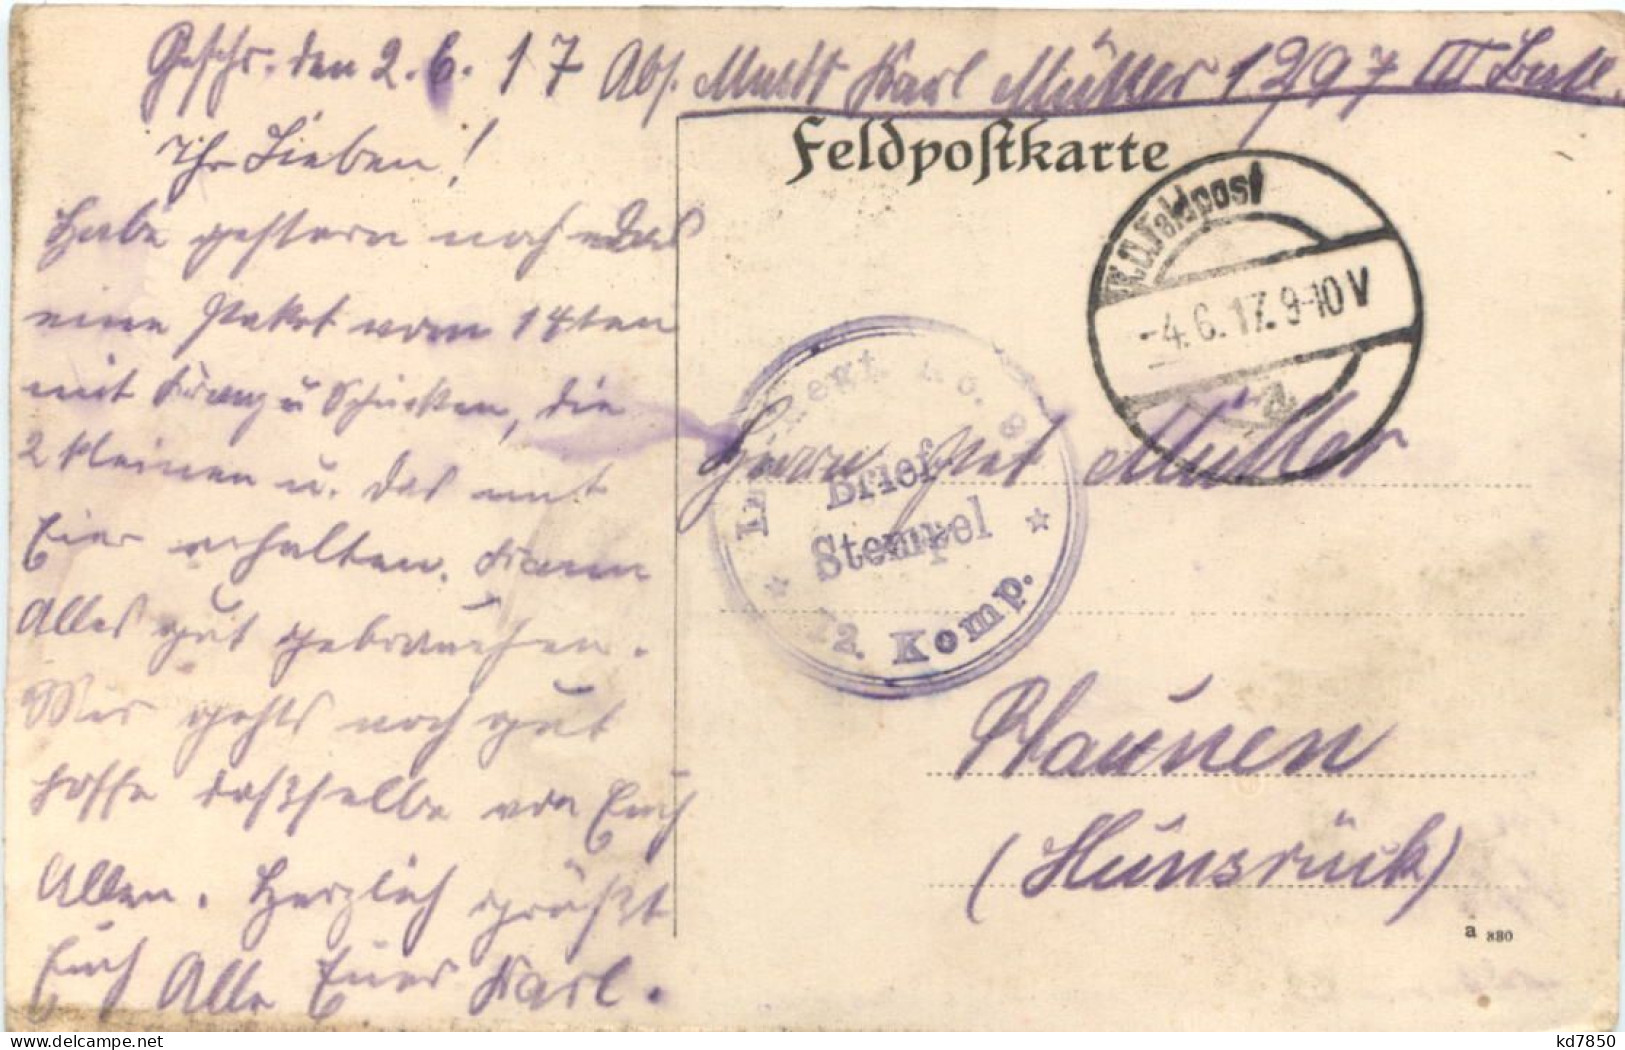 Geschr. den 2.6.17 Abs. Mustt Karl Müller 12/97 III Batl.
Ihr Lieben!
Habe gestern noch das
eine Paket vom 14ten
mit Kranz u Schinken, die
2 kleinen u. das mit
Eier erhalten. Kann
Alles gut gebrauchen.
Mir gehts noch gut
hoffe dasselbe von Euch
Allen. Herzlich grüßt
Euch Alle Euer Karl.
Feldpostkarte
K.D. Feldpost
-4.6.17. 9-10 V
a
Brief
Stempel
12. Komp.
Herrn Müller
Rhaunen
(Hunsrück)
a 880
kd7850